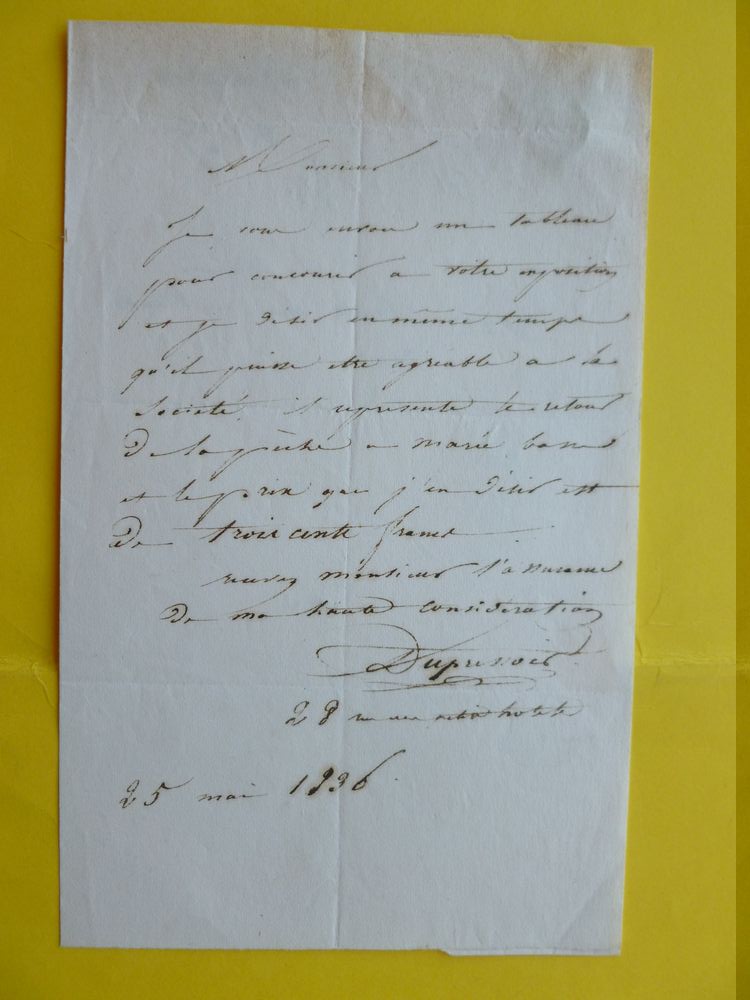 Monsieur
Je vous envoie un tableau
pour concourir a votre exposition
et je désir en même temps
qu'il puisse etre agréable a la
Societé. il represente le retour
De la pèche a marée basse
et le prix que j'en désir est
De trois cents francs
recevez monsieur l'assurance
De ma haute consideration
Dupressoir
28 rue des
25 mai 1836.